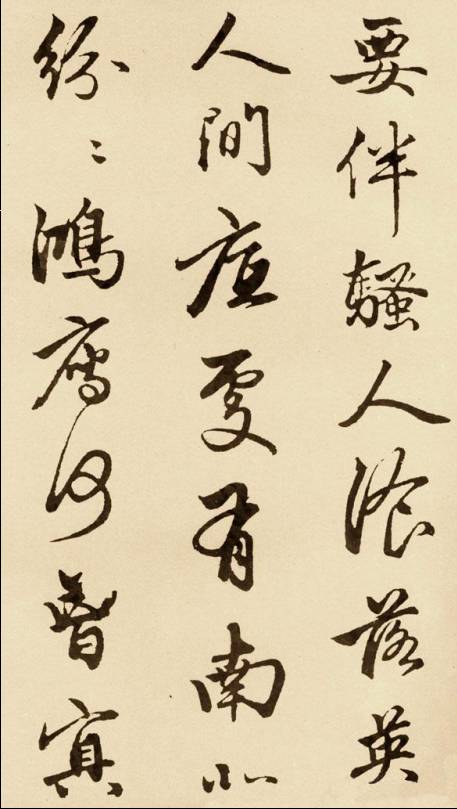 要伴騷人餐落英
人間底處有南北
紛〻鴻雁何曾冥